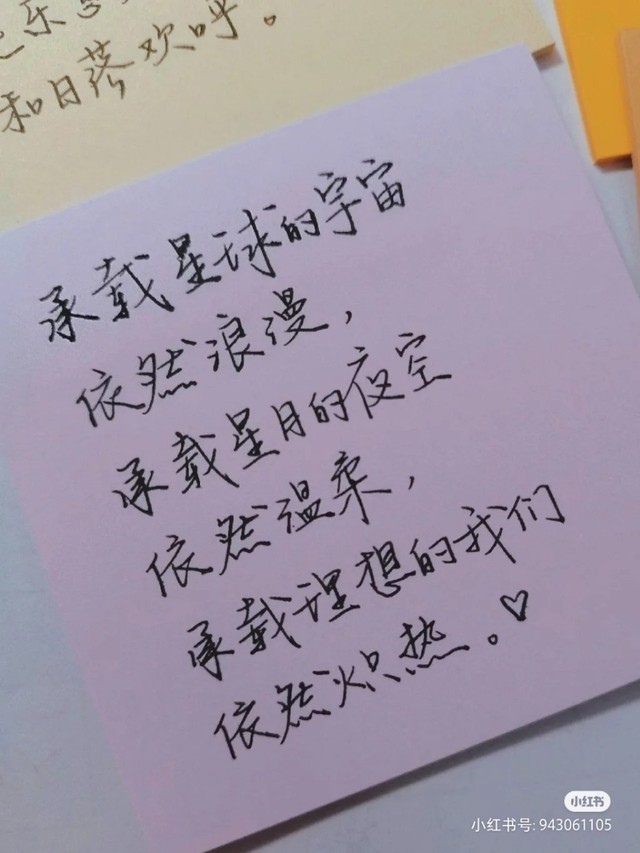 和日落欢呼。
承载星球的宇宙
依然浪漫，
承载星月的夜空
依然温柔，
承载理想的我们
依然炽热。♡
小红书
小红书号: 943061105